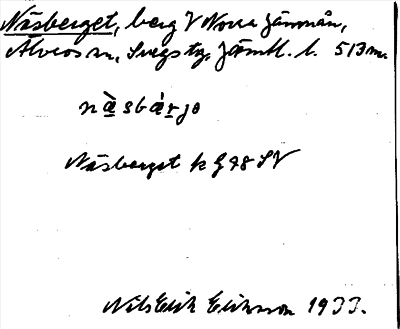 Näsberget, berg V Norra Jämnån,
Älvros sn, Svegs tg, Jämtl. l. 513 m.
nä̀sbä́rjə
Näsberget k G 98 SV
Nils Erik Eriksson 1933.